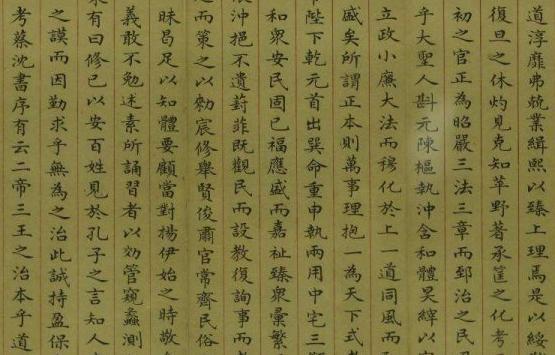 道淳靡弗兢業緝熙以臻上理焉是以綏
復旦之休灼見克知苹野著承筐之化考
初之官正為昭嚴三法三章而郅治之民
乎大聖人斟元陳樞執沖含和體昊縡以
立政小廉大法而穆化於上一道同風而
戚矣所謂正本則萬事理抱一為天下式
陛下乾元首出巽命重申執兩用中宅三
和衆安民固已福應盛而嘉祉臻衆彙繁
沖挹不遺葑菲既觀民而設教復詢事而
而策之以勑宸修舉賢俊肅官常齊民俗
昧曷足以知體要顧當對揚伊始之時敬
義敢不勉述素所誦習者以効管窺蠡測
有曰修已以安百姓見於孔子之言知人
之謨而因勤求乎無為之治此誠持盈保
考蔡沈書序有云二帝三王之治本乎道